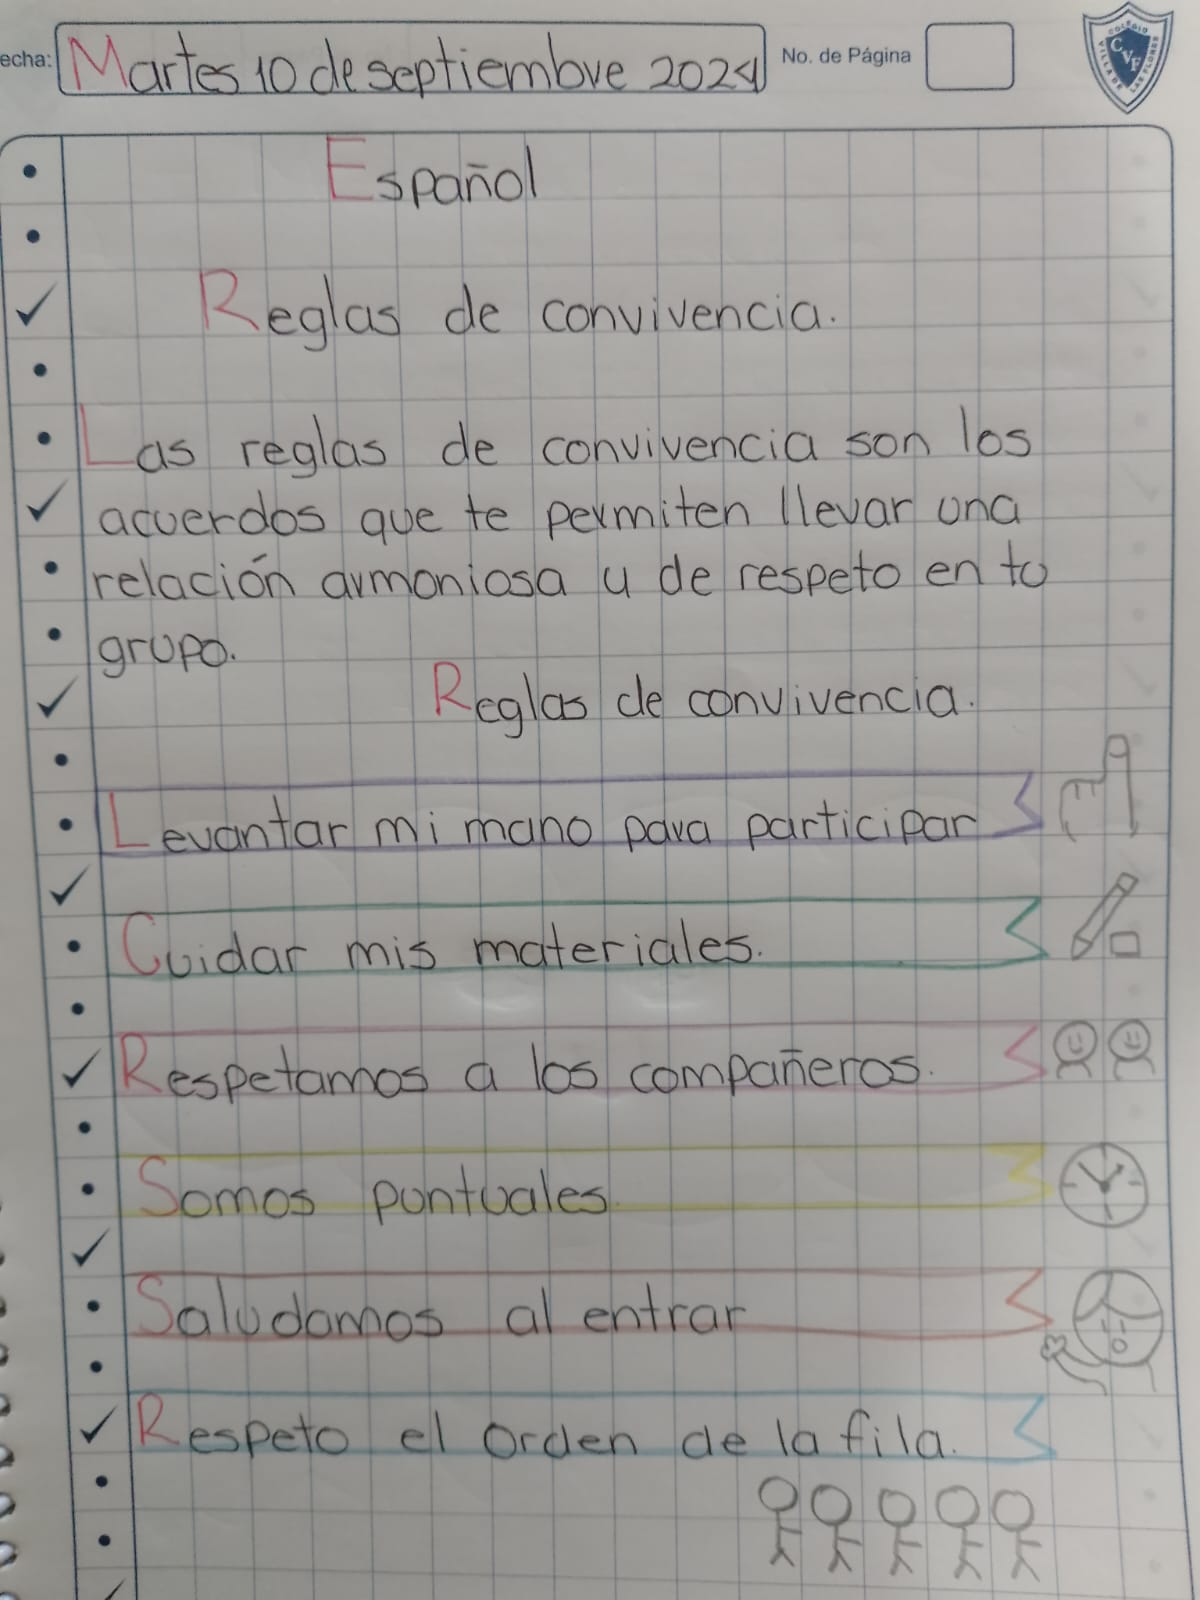 echa: Martes 10 de septiembre 2024 No. de Página
COLEGIO VILLA DE LAS FLORES
CVF
Español
Reglas de convivencia.
Las reglas de convivencia son los
acuerdos que te permiten llevar una
relación armoniosa y de respeto en tu
grupo.
Reglas de convivencia.
Levantar mi mano para participar
Cuidar mis materiales.
Respetamos a los compañeros.
Somos puntuales.
Saludamos al entrar
Respeto el orden de la fila.